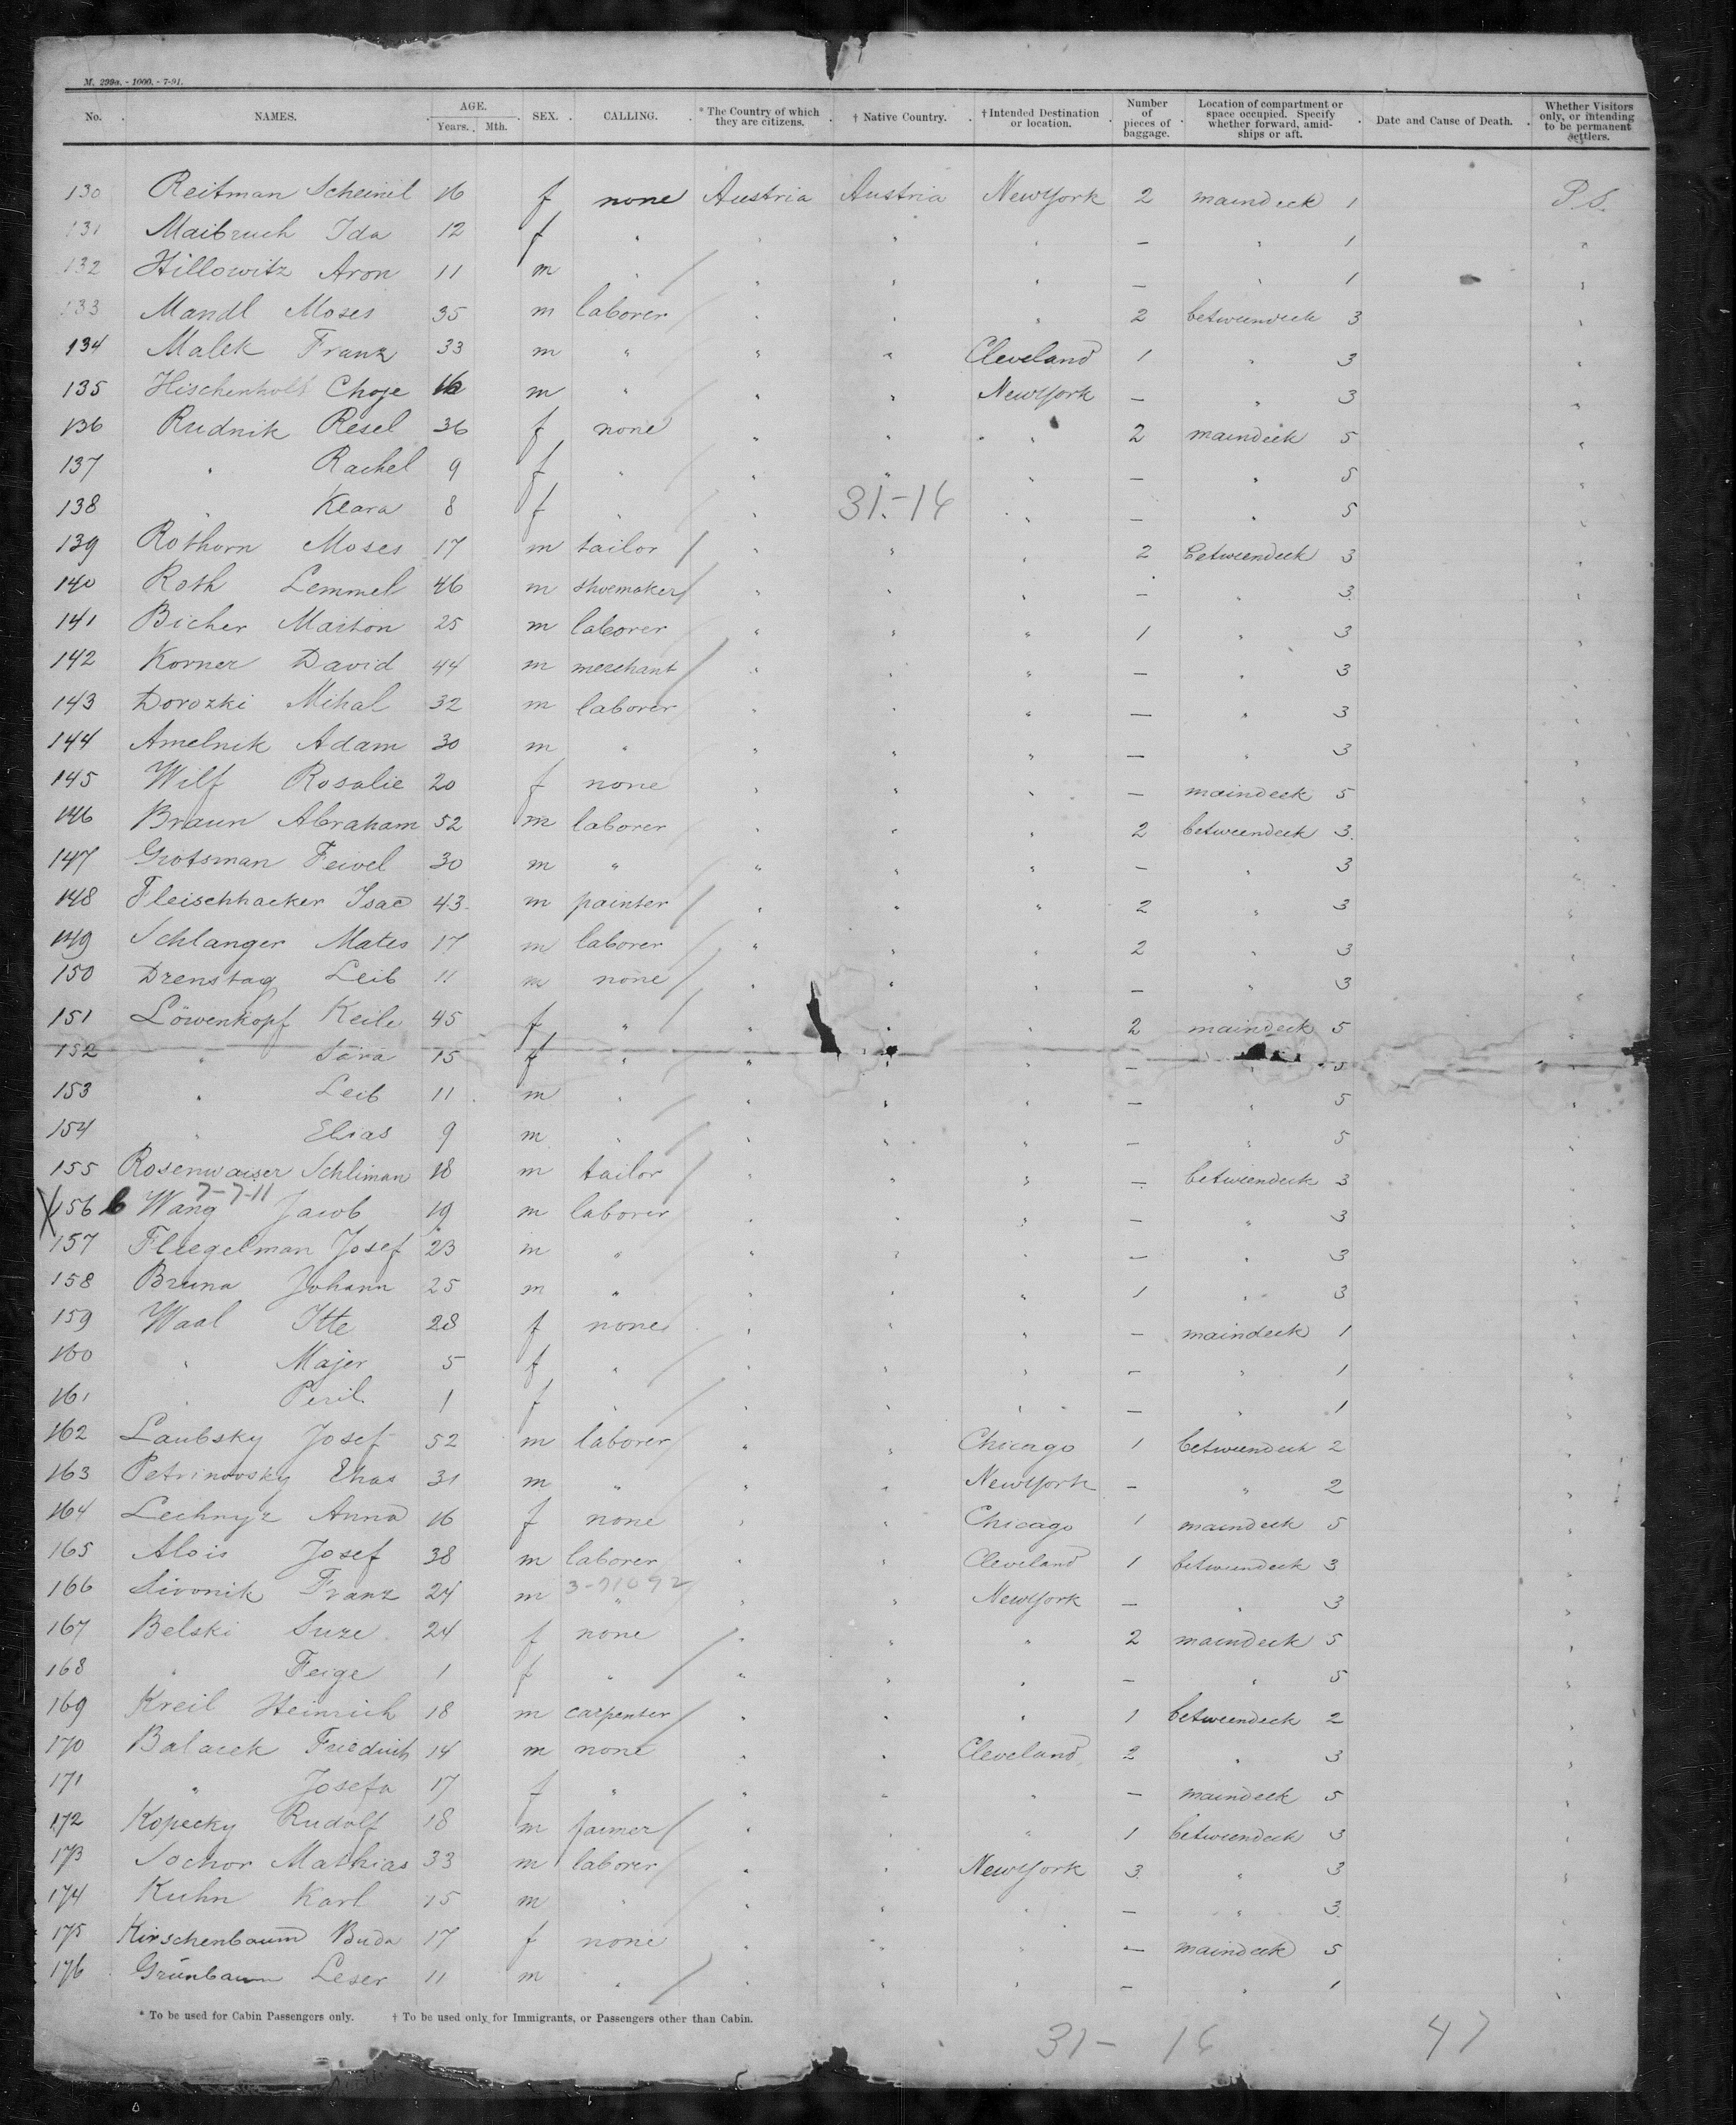 M. 299a. - 1000. - 7-91.
No. NAMES. AGE. Years. Mth. SEX. CALLING. * The Country of which they are citizens. † Native Country. † Intended Destination or location. Number of pieces of baggage. Location of compartment or space occupied. Specify whether forward, amid-ships or aft. Date and Cause of Death. Whether Visitors only, or intending to be permanent settlers.
130 Reitman Scheindl 16 f none Austria Austria New York 2 maindeck 1 P.S.
131 Maibruch Ida 12 f " " " " — " 1 "
132 Hillowitz Aron 11 m " " " " — " 1 "
133 Mandl Moses 35 m laborer " " " 2 betweendeck 3 "
134 Malek Franz 33 m " " " Cleveland 1 " 3 "
135 Choje 16 m " " " New York — " 3 "
136 Rudnik Resel 36 f none " " " 2 maindeck 5 "
137 " Rachel 9 f " " " " — " 5 "
138 " Klara 8 f " " 31.-16 " — " 5 "
139 Rothorn Moses 17 m tailor " " " 2 betweendeck 3 "
140 Roth Lemmel 46 m shoemaker " " " — " 3 "
141 Bicher Maiton 25 m laborer " " " 1 " 3 "
142 Korner David 44 m merchant " " " — " 3 "
143 Dorozki Mihal 32 m laborer " " " — " 3 "
144 Amelnik Adam 30 m " " " " — " 3 "
145 Wilf Rosalie 20 f none " " " — maindeck 5 "
146 Braun Abraham 52 m laborer " " " 2 betweendeck 3 "
147 Grotsman Feivel 30 m " " " " — " 3 "
148 Fleischhacker Isac 43 m painter " " " 2 " 3 "
149 Schlanger Mates 17 m laborer " " " 2 " 3 "
150 Drenstag Leib 11 m none " " " — " 3 "
151 Löwenkopf Keile 45 f " " " " 2 maindeck 5 "
152 " Sara 15 f " " " " — " 5 "
153 " Leib 11 m " " " " — " 5 "
154 " Elias 9 m " " " " — " 5 "
155 Rosenwaiser Schliman 18 m tailor " " " — betweendeck 3 "
7-7-11
X 156 Wang Jacob 19 m laborer " " " — " 3 "
157 Fliegelman Josef 23 m " " " " — " 3 "
158 Bruna Johann 25 m " " " " 1 " 3 "
159 Waal Itte 28 f none " " " — maindeck 1 "
160 " Majer 5 f " " " " — " 1 "
161 " Peril 1 f " " " " — " 1 "
162 Laubsky Josef 52 m laborer " " Chicago 1 betweendeck 2 "
163 Petrinovsky Elias 31 m " " " New York — " 2 "
164 Lechnyr Anna 16 f none " " Chicago 1 maindeck 5 "
165 Alois Josef 38 m laborer " " Cleveland 1 betweendeck 3 "
166 Sivonik Franz 24 m " " " New York — " 3 "
167 Belski Suze 24 f none " " " 2 maindeck 5 "
168 " Feige 1 f " " " " — " 5 "
169 Kreil Heinrich 18 m carpenter " " " 1 betweendeck 2 "
170 Balacek Friedrich 14 m none " " Cleveland 2 " 3 "
171 " Josefa 17 f " " " " — maindeck 5 "
172 Kopecky Rudolf 18 m farmer " " " 1 betweendeck 3 "
173 Sochor Mathias 33 m laborer " " New York 3 " 3 "
174 Kuhn Karl 15 m " " " " — " 3 "
175 Kirschenbaum Buda 17 f none " " " — maindeck 5 "
176 Grünbaum Leser 11 m " " " " — " 1 "
* To be used for Cabin Passengers only. † To be used only for Immigrants, or Passengers other than Cabin.
31- 16 47